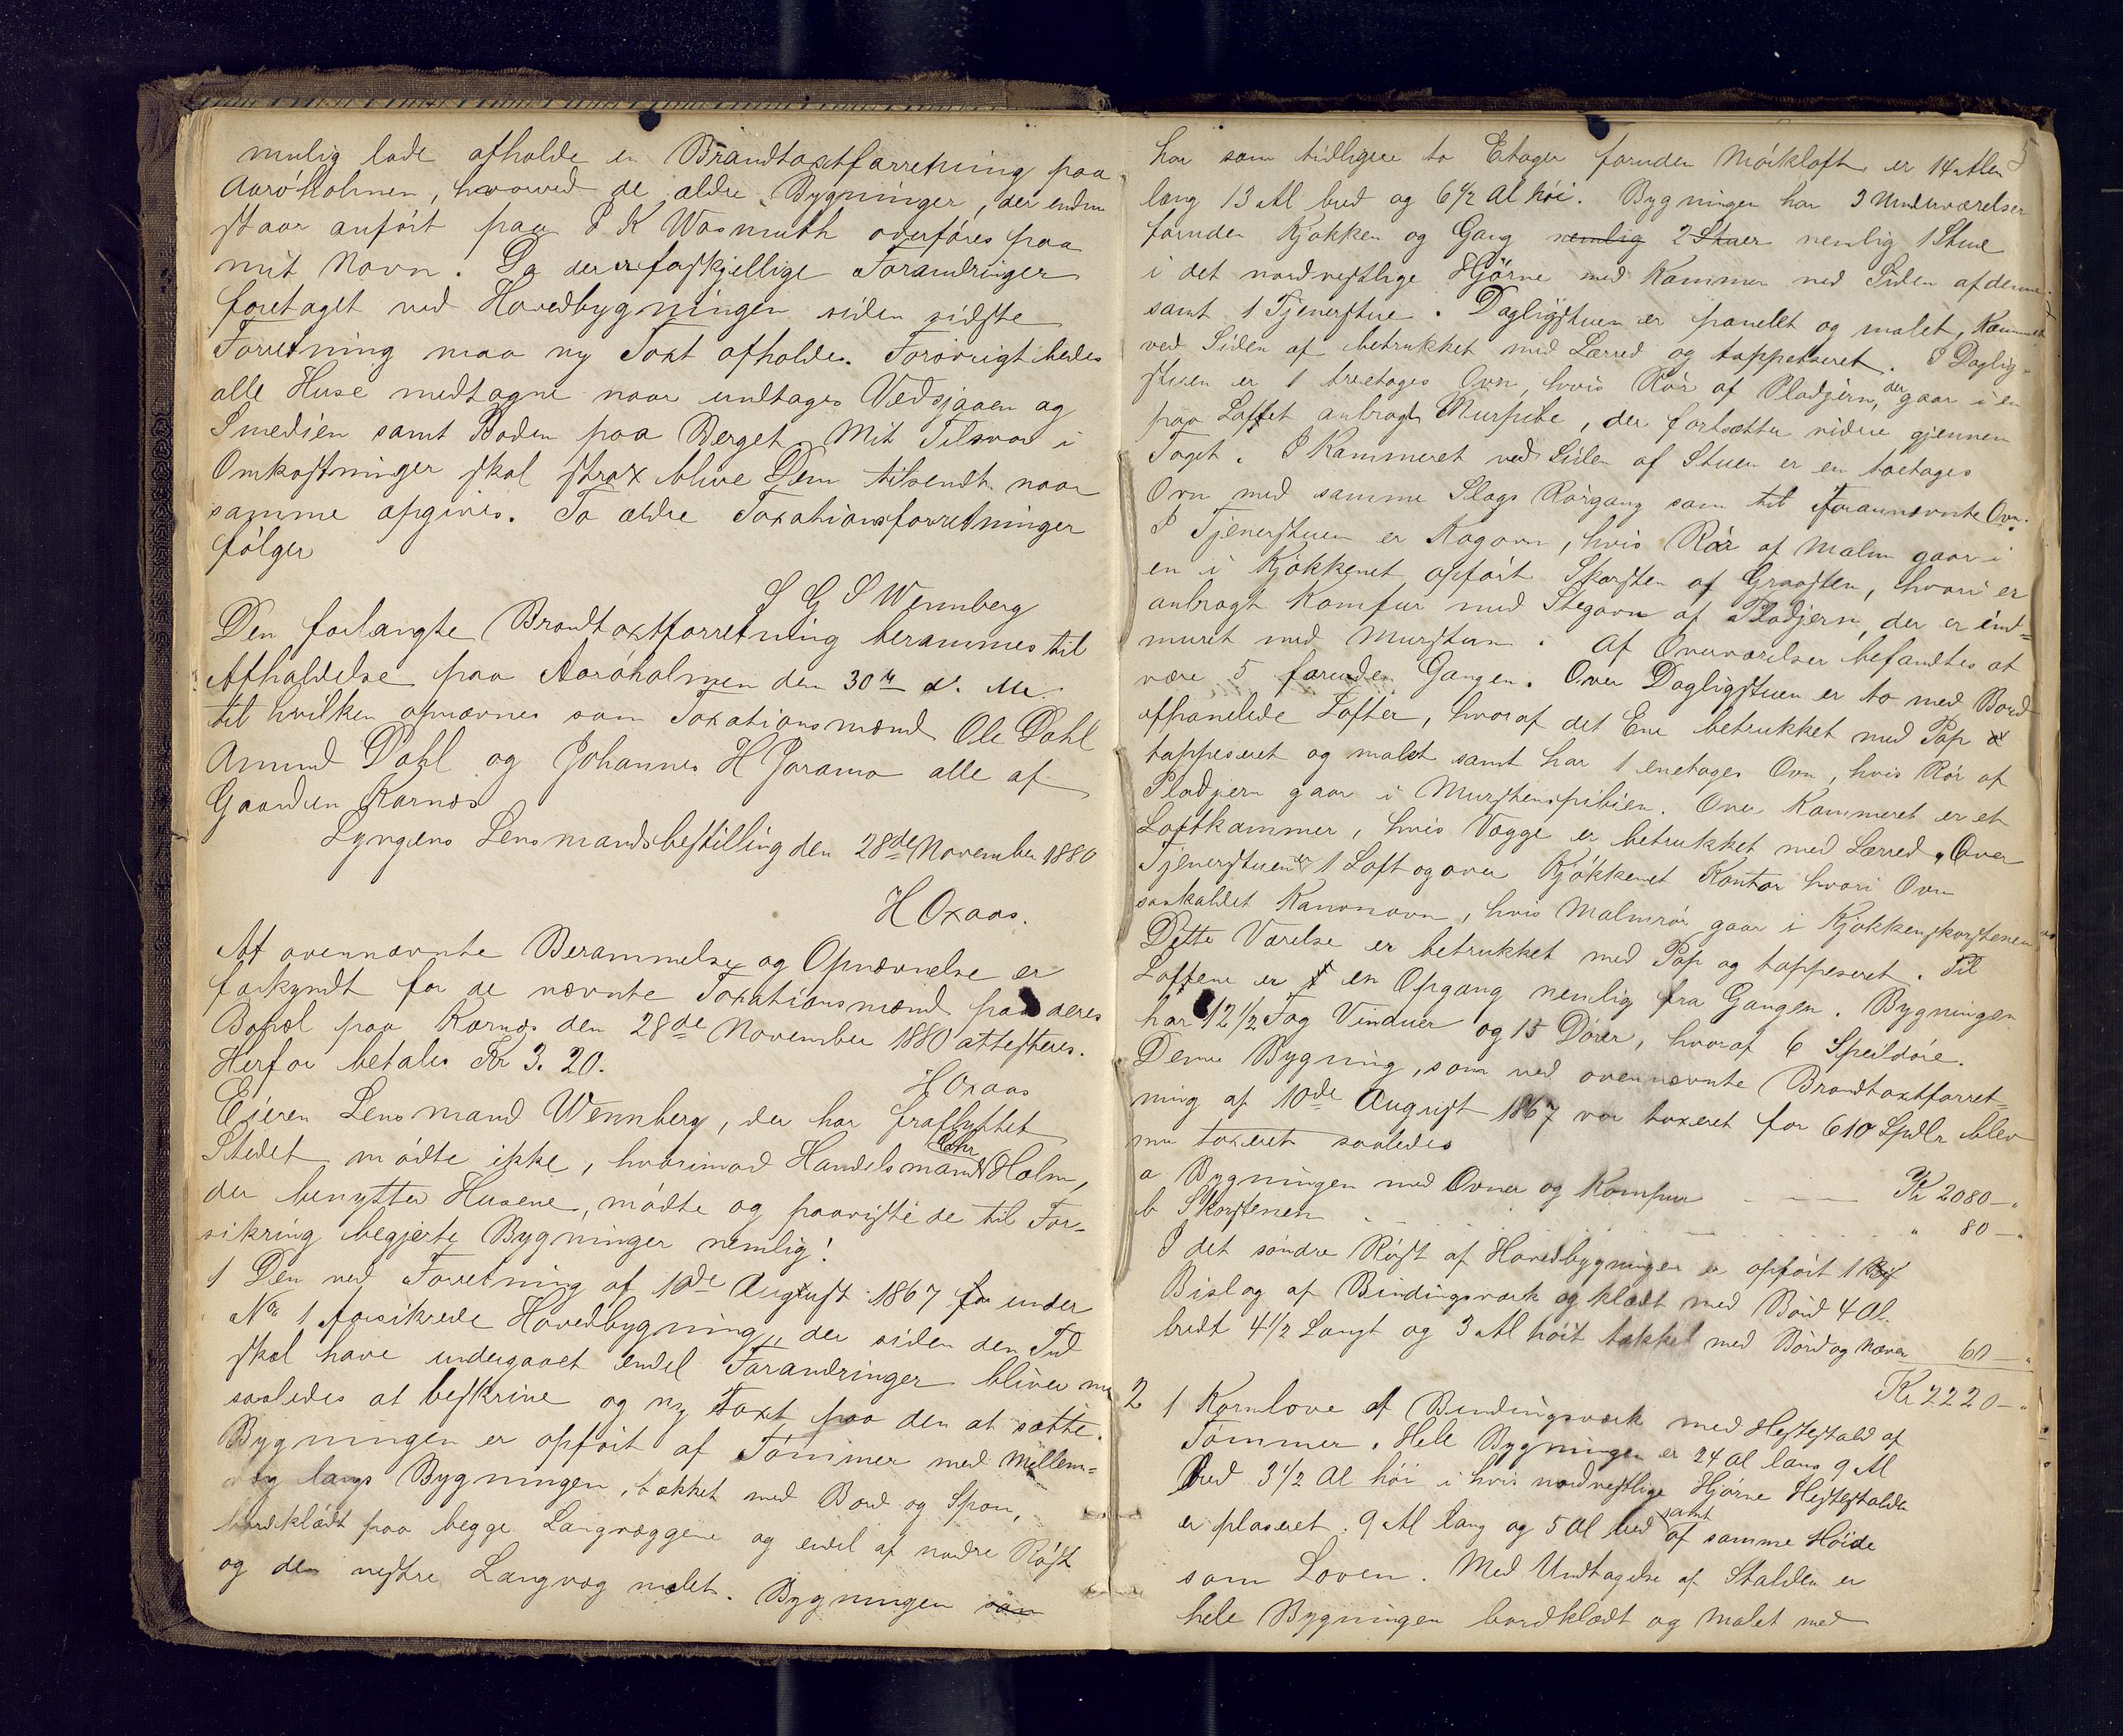 mulig lade afholde en Brandtaxtforretning paa
Aaröholmen, hvorved de ældre Bygninger, der endnu
staar anfört paa I K Wasmuth overföres paa
mit Navn. Da der er forskjellige Forandringer
foretaget ved Hovedbygningen siden sidste
Forretning maa ny Taxt afholdes. Forövrigt bedes
alle Huse medtagne naar undtages Vedsjaaen og
Smedien samt Boden paa Berget. Mit Tilsvar i
Omkostninger skal strax blive Dem tilsendt naar
samme opgives. To ældre Taxationsforretninger
fölger
S G S Wennberg
Den forlangte Brandtaxtforretning berammes til
Afholdelse paa Aaröholmen den 30te d. M.
til hvilken opnævnes som Taxationsmænd Ole Dahl
Amund Dahl og Johannes H Joramo alle af
Gaarden Karnes
Lyngens Lensmandsbestilling den 28de November 1880
H Oxaas.
At ovennævnte Berammelse og Opnævnelse er
forkyndt for de nævnte Taxationsmænd paa deres
Bopæl paa Karnes den 28de November 1880 attesteres.
Herfor betales Kr 3.20.
H Oxaas
Eieren Lensmand Wennberg, der har fraflyttet
Stedet mödte ikke, hvorimod Handelsmand Chr Holm,
der benytter Husene, mödte og paaviste de til For-
sikring begjerte Bygninger nemlig:
1 Den ved Forretning af 10de August 1867 for under
No 1 forsikrede Hovedbygning, der siden den Tid
skal have undergaaet endel Forandringer bliver nu
saaledes at beskrive og ny Taxt paa den at sætte.
Bygningen er opfört af Tömmer med Mellem-
væg langs Bygningen, tækket med Bord og Spon,
bordklædt paa begge Langvæggene og endel af nordre Röst
og den vestre Langvæg malet. Bygningen
5
har som tidligere to Etager foruden Mörkloft er 14 Alen
lang 13 Al bred og 6 1/2 Al höi. Bygningen har 3 Underværelser
foruden Kjökken og Gang nemlig 2 Stuer nemlig 1 Stue
i det nordvestlige Hjörne med Kammer ved Siden af denne
samt 1 Tjenerstue. Dagligstuen er panelet og malet, Kammeret
ved Siden af betrukket med Lærred og tappetseret. I Daglig-
stuen er 1 treetages Ovn, hvis Rör af Pladjern, der gaar i en
paa Loftet anbragt Murpibe, der fortsætter videre gjennem
Taget. I Kammeret ved Siden af Stuen er en toetages
Ovn med samme Slags Rörgang som til forannævnte Ovn.
I Tjenerstuen er Kogovn, hvis Rör af Malm gaar i
en i Kjökkenet opfört Skorsten af Graasten, hvori er
anbragt Komfur med Stegovn af Pladjern, der er ind-
muret med Mursten. Af Overværelser befandtes at
være 5 foruden Gangen. Over Dagligstuen er to med Bord
afpanelede Lofter, hvoraf det Ene betrukket med Pap
tappeseret og malet samt har 1 enetages Ovn, hvis Rör af
Pladjern gaar i Murstenspiben. Over Kammeret er et
Loftkammer, hvis Vægge er betrukket med Lærred. Over
Tjenerstuen er 1 Loft og over Kjökkenet Kontor hvori Ovn
saakaldet Kanonovn, hvis Malmrör gaar i Kjökkenskorstenen
Dette Værelse er betrukket med Pap og tappeseret. Til
Loftene er en Opgang nemlig fra Gangen. Bygningen
har 12 1/2 Fag Vinduer og 15 Dörer, hvoraf 6 Speildöre.
Denne Bygning, som ved ovennævnte Brandtaxtforret-
ning af 10de August 1867 var taxeret for 610 Spdlr blev
nu taxeret saaledes
a Bygningen med Ovne og Komfur Kr 2080 - "
b Skorstenen " 80 - "
I det söndre Röst af Hovedbygningen er opfört 1
Bislag af Bindingsværk og klædt med Bord 4 Al
bredt 4 1/2 Langt og 3 Al höit tækket med Bord og Næver 60 - "
Kr 2220 - "
2 1 Kornlove af Bindingsværk med Hestestald af
Tömmer. Hele Bygningen er 24 Al lang 9 Al
Bred 3 1/2 Al höi i hvis nordvestlige Hjörne Hestestalden
er plaseret. 9 Al lang og 5 Al bred samt af samme Höide
som Loven. Med Undtagelse af Stalden er
hele Bygningen bordklædt og malet med